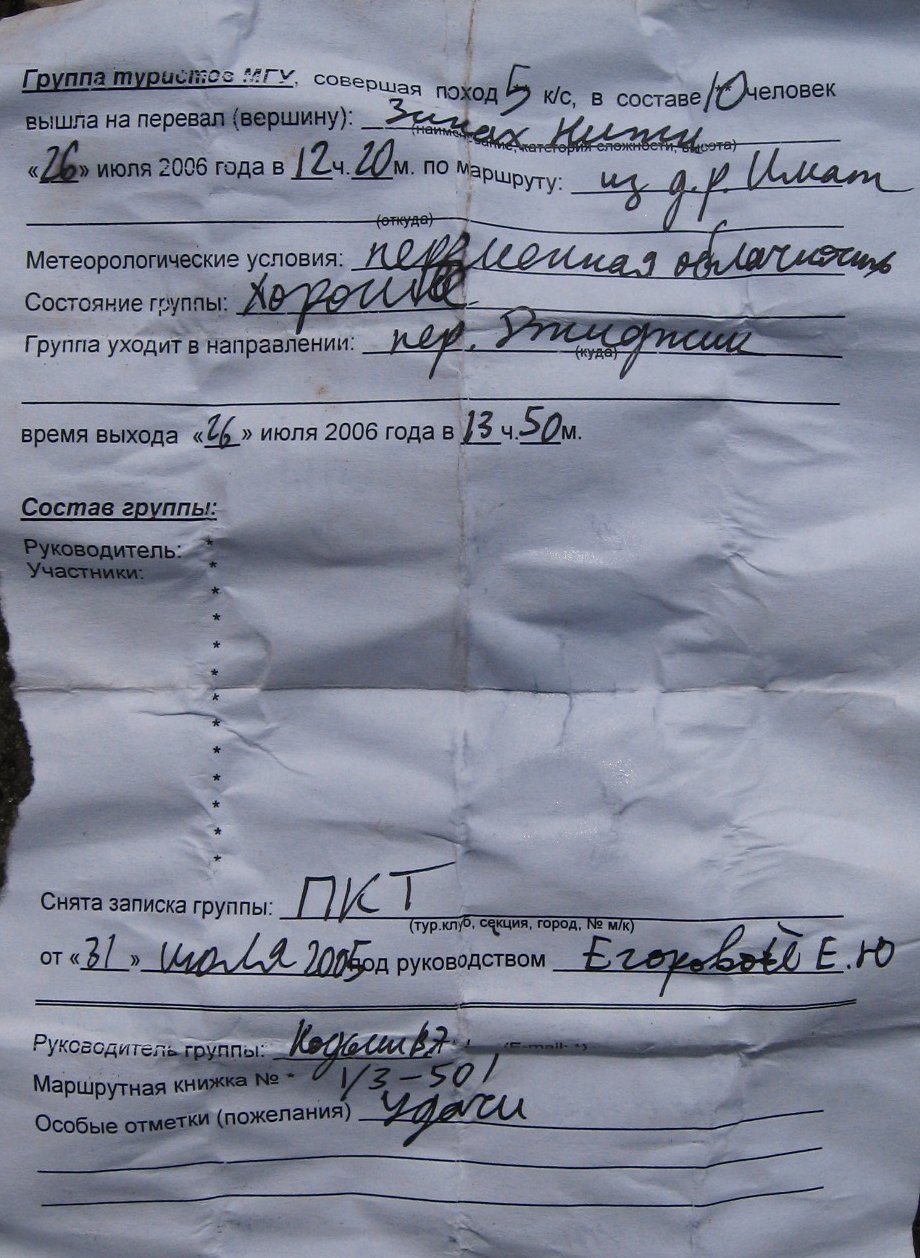 Группа туристов МГУ, совершая поход 5 к/с, в составе 10 человек
вышла на перевал (вершину): Зигах Нижн
(наименование, категория сложности, высота)
«26» июля 2006 года в 12 ч. 20 м. по маршруту: из д.р. Имат
(откуда)
Метеорологические условия: переменная облачность
Состояние группы: хорошее
Группа уходит в направлении: пер.
(куда)
время выхода «26» июля 2006 года в 13 ч. 50 м.
Состав группы:
Руководитель: *
Участники: *
*
*
*
*
*
*
*
*
*
*
*
Снята записка группы: ПКТ
(тур.клуб, секция, город, № м/к)
от «31» июля 2005 под руководством Егоровой Е.Ю
Руководитель группы: (E-mail: *)
Маршрутная книжка № * 1/3-501
Особые отметки (пожелания) Удачи